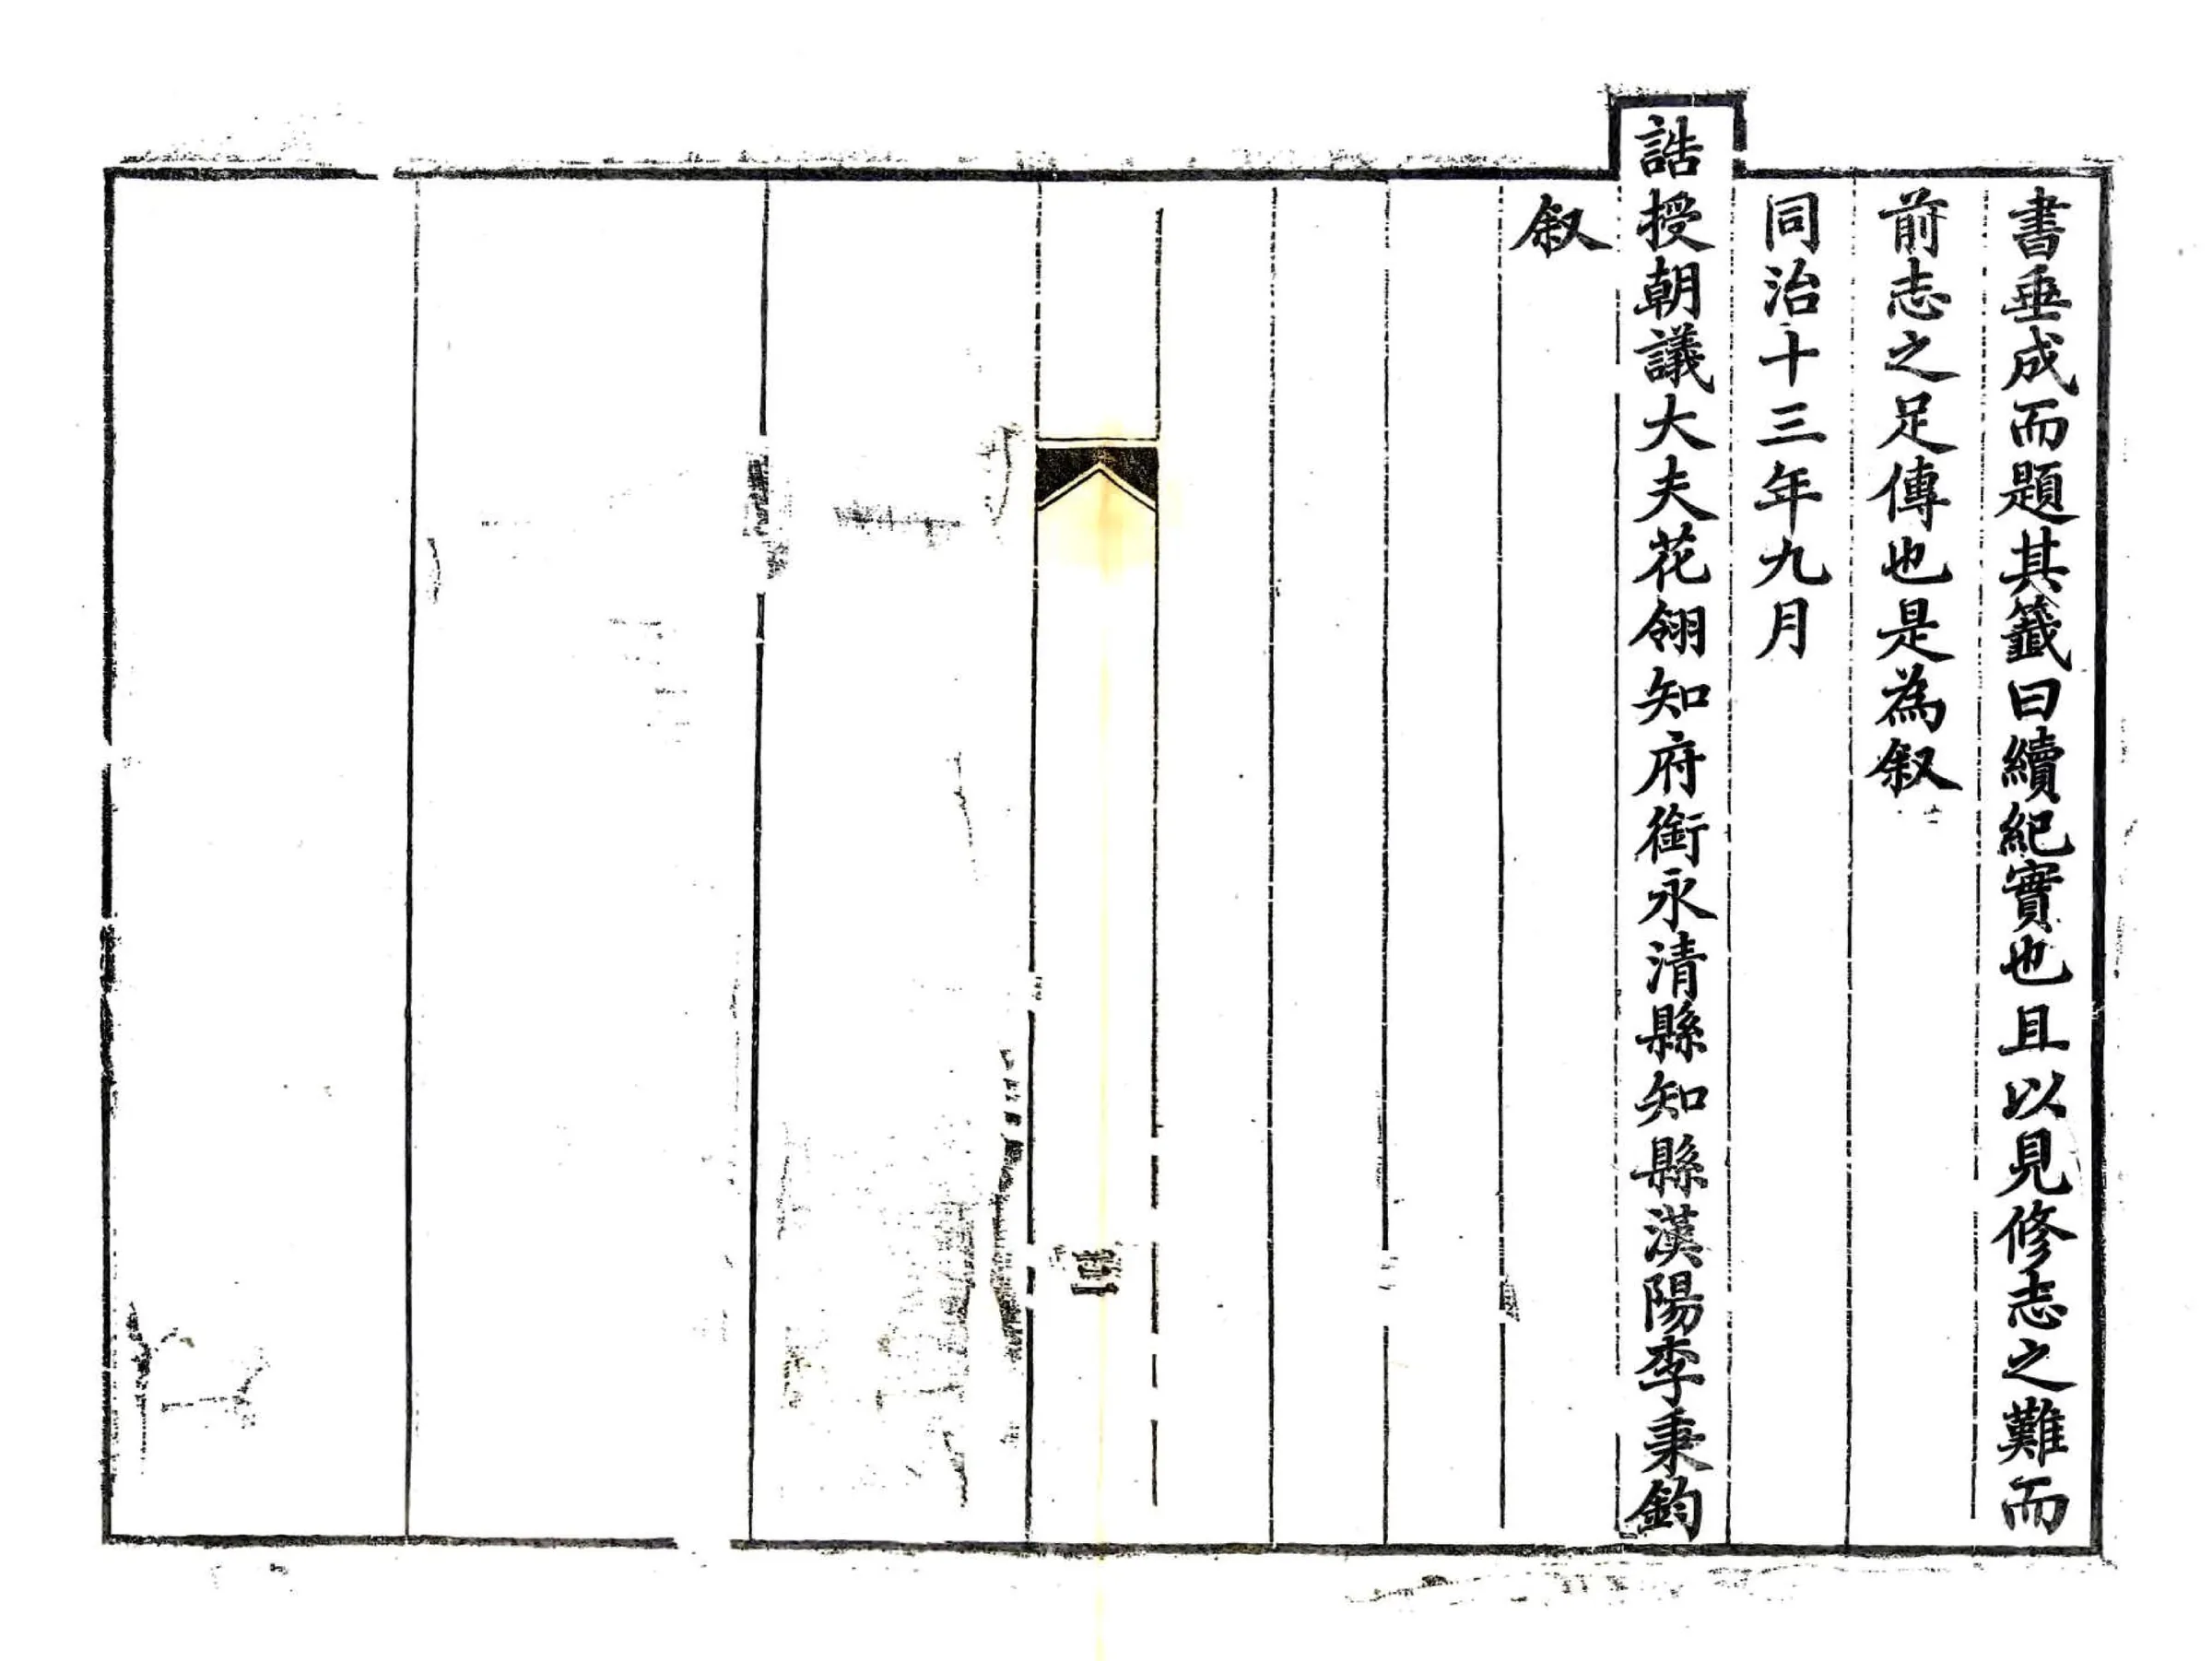 書垂成而題其籤曰續紀實也且以見修志之難而
前志之足傳也是為叙
同治十三年九月
誥授朝議大夫花翎知府銜永清縣知縣漢陽李秉鈞
叙